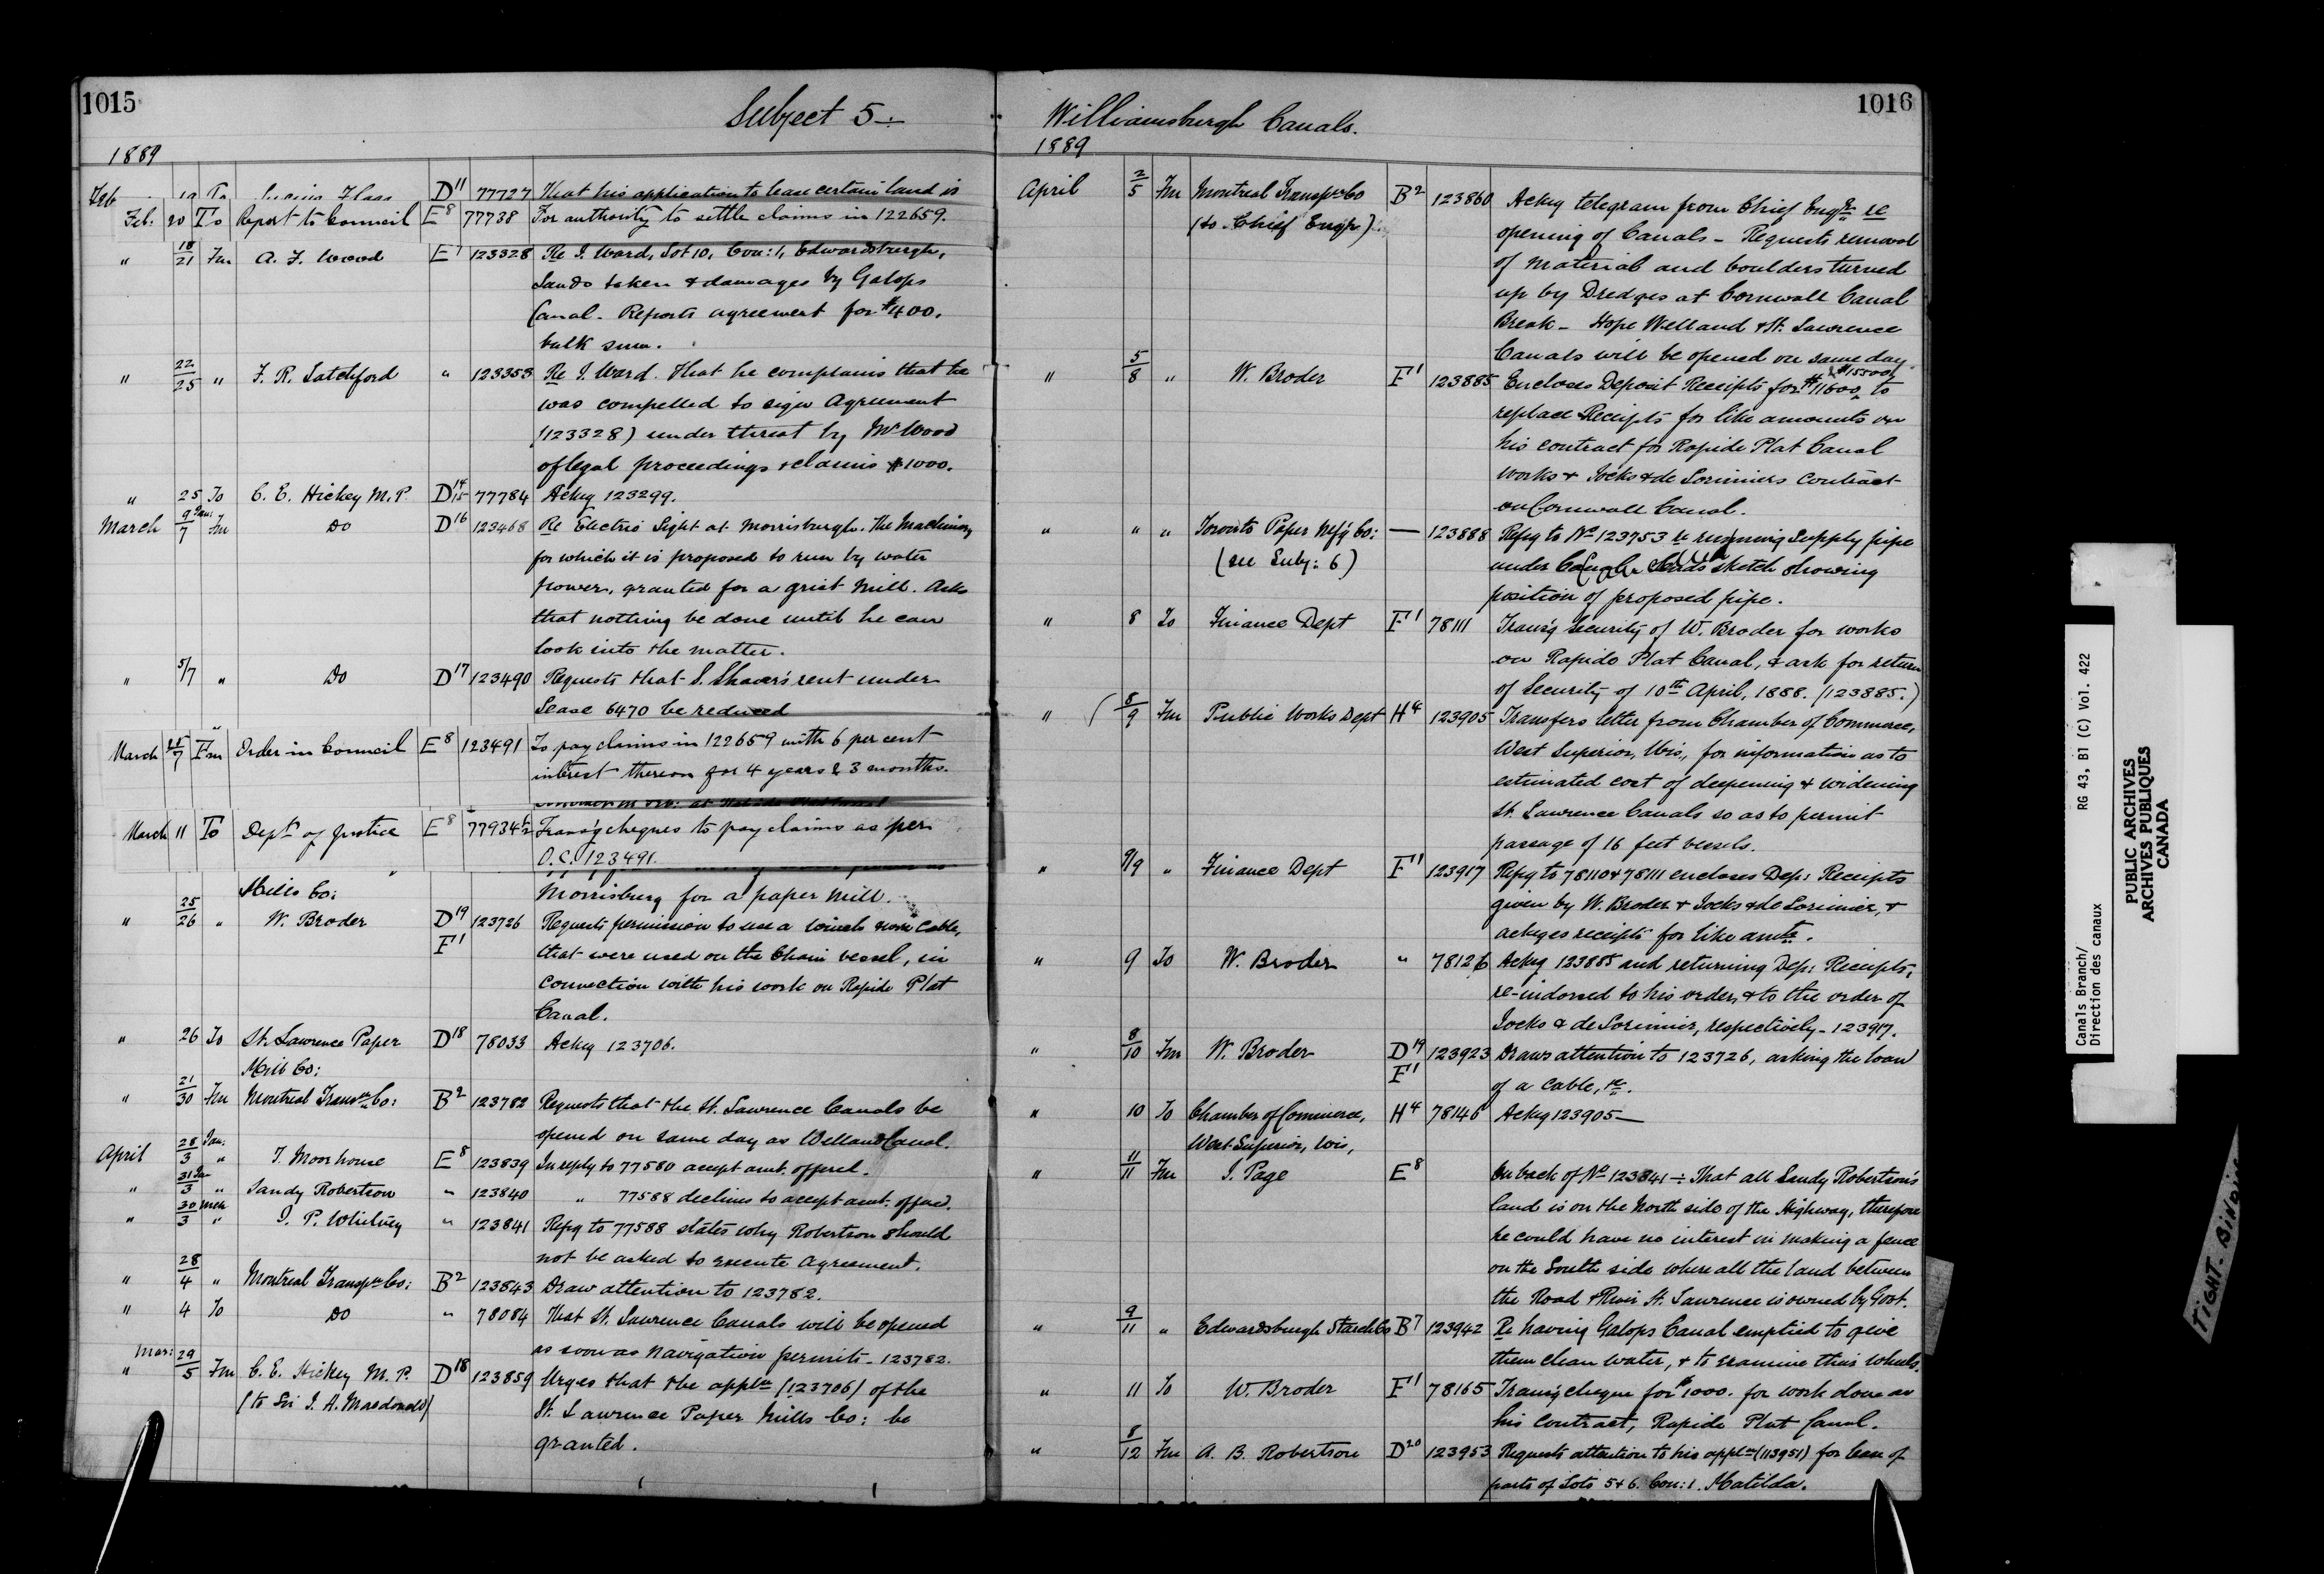 1015
Subject 5 :-
1889
Feb 19 To D11 77727 That his application to lease certain land is
Feb. 20 To Report to Council E8 77738 For authority to settle claims in 122659.
" 18/21 Fm A. F. Wood E7 123328 Re J. Ward, Lot 10, Con: 1, Edwardsburgh,
Lands taken & damages by Galops
Canal. Reports agreement for $400.
bulk sum.
" 22/25 " F. R. Latchford " 123353 Re J. Ward. That he complains that he
was compelled to sign Agreement
(123328) under threat by Mr Wood
of legal proceedings & claims $1000.
" 25 To C. E. Hickey M.P. D14/15 77784 Ackg 123299.
March 9 Jan:/7 Fm Do D16 123468 Re Electric Light at Morrisburgh. The Machinery
for which it is proposed to run by water
power, granted for a grist mill. Asks
that nothing be done until he can
look into the matter.
" 5/7 " Do D17 123490 Requests that S. Shaver's rent under
Lease 6470 be reduced
March 25/7 Fm Order in Council E8 123491 To pay claims in 122659 with 6 per cent
interest thereon for 4 years & 3 months.
March 11 To Dept of Justice E8 77934½ Transg cheques to pay claims as per
O.C. 123491.
Mills Co: Morrisburg for a paper mill.
" 25/26 " W. Broder D19 F1 123726 Requests permission to use a winch & wire cable,
that were used on the Chain vessel, in
connection with his work on Rapide Plat
Canal.
" 26 To St. Lawrence Paper D18 78033 Ackg 123706.
Mill Co:
" 21/30 Fm Montreal Transpn Co: B2 123782 Requests that the St. Lawrence Canals be
opened on same day as Welland Canal.
April 28 Jan:/3 " T. Moorhouse E8 123839 In reply to 77580 accept amt. offered.
" 31 Jan/3 " Sandy Robertson " 123840 " 77588 declines to accept amt. offered.
" 30 Mch/3 " J. P. Whitney " 123841 Repg to 77588 states why Robertson should
not be asked to execute agreement.
" 28/4 " Montreal Transpn Co: B2 123843 Draw attention to 123782.
" 4 To Do " 78084 That St. Lawrence Canals will be opened
as soon as navigation permits - 123782.
" Mar: 29/5 Fm C. E. Hickey M. P. D18 123859 Urges that the appln (123706) of the
(to Sir J. A. Macdonald) St. Lawrence Paper Mills Co: be
granted.
1016
Williamsburgh Canals.
1889
April 2/5 Fm Montreal Transpn Co B2 123860 Ackg telegram from Chief Engr re
(to Chief Engr) opening of Canals - Requests removal
of material and boulders turned
up by Dredges at Cornwall Canal
Break - Hope Welland & St. Lawrence
Canals will be opened on same day.
" 5/8 " W. Broder F1 123885 Encloses Deposit Receipts for $11600, & $15500, to
replace Receipts for like amounts on
his contract for Rapide Plat Canal
works & Jocks & de Lorimiers contract
on Cornwall Canal.
" " " Toronto Paper Mf'g Co: — 123888 Repg to No 123753 re running supply pipe
(see Subj: 6) under Canal. Sends sketch showing
position of proposed pipe.
" 8 To Finance Dept F1 78111 Trans'g security of W. Broder for works
on Rapide Plat Canal, & ask for return
of Security of 10th April, 1888. (123885.)
" 8/9 Fm Public Works Dept H4 123905 Transfers letter from Chamber of Commerce,
West Superior, Wis, for information as to
estimated cost of deepening & widening
St. Lawrence Canals so as to permit
passage of 16 feet vessels.
" 9/9 " Finance Dept F1 123917 Repg to 78110 & 78111 encloses Dep: Receipts
given by W. Broder & Jocks & de Lorimier, &
ackges receipts for like amts.
" 9 To W. Broder " 78126 Ackg 123885 and returning Dep: Receipts,
re-indorsed to his order, & to the order of
Jocks & de Lorimier, respectively - 123917.
" 8/10 Fm W. Broder D19 F1 123923 Draws attention to 123726, asking the loan
of a cable, &c.
" 10 To Chamber of Commerce, H4 78146 Ackg 123905 —
West Superior, Wis,
" 11/11 Fm J. Page E8 On back of No 123841 :- That all Sandy Robertson's
land is on the North side of the Highway, therefore
he could have no interest in making a fence
on the South side where all the land between
the Road & River St. Lawrence is owned by Govt.
" 9/11 " Edwardsburgh Starch Co B7 123942 Re having Galops Canal emptied to give
them clean water, & to examine their wheels.
" 11 To W. Broder F1 78165 Trans'g cheque for $1000. for work done on
his contract, Rapide Plat Canal.
" 8/12 Fm A. B. Robertson D20 123953 Requests attention to his appln (113951) for lease of
parts of Lots 5 & 6. Con: 1. Matilda.
Canals Branch/
Direction des canaux
RG 43, B1 (C) Vol. 422
PUBLIC ARCHIVES
ARCHIVES PUBLIQUES
CANADA
TIGHT BINDING